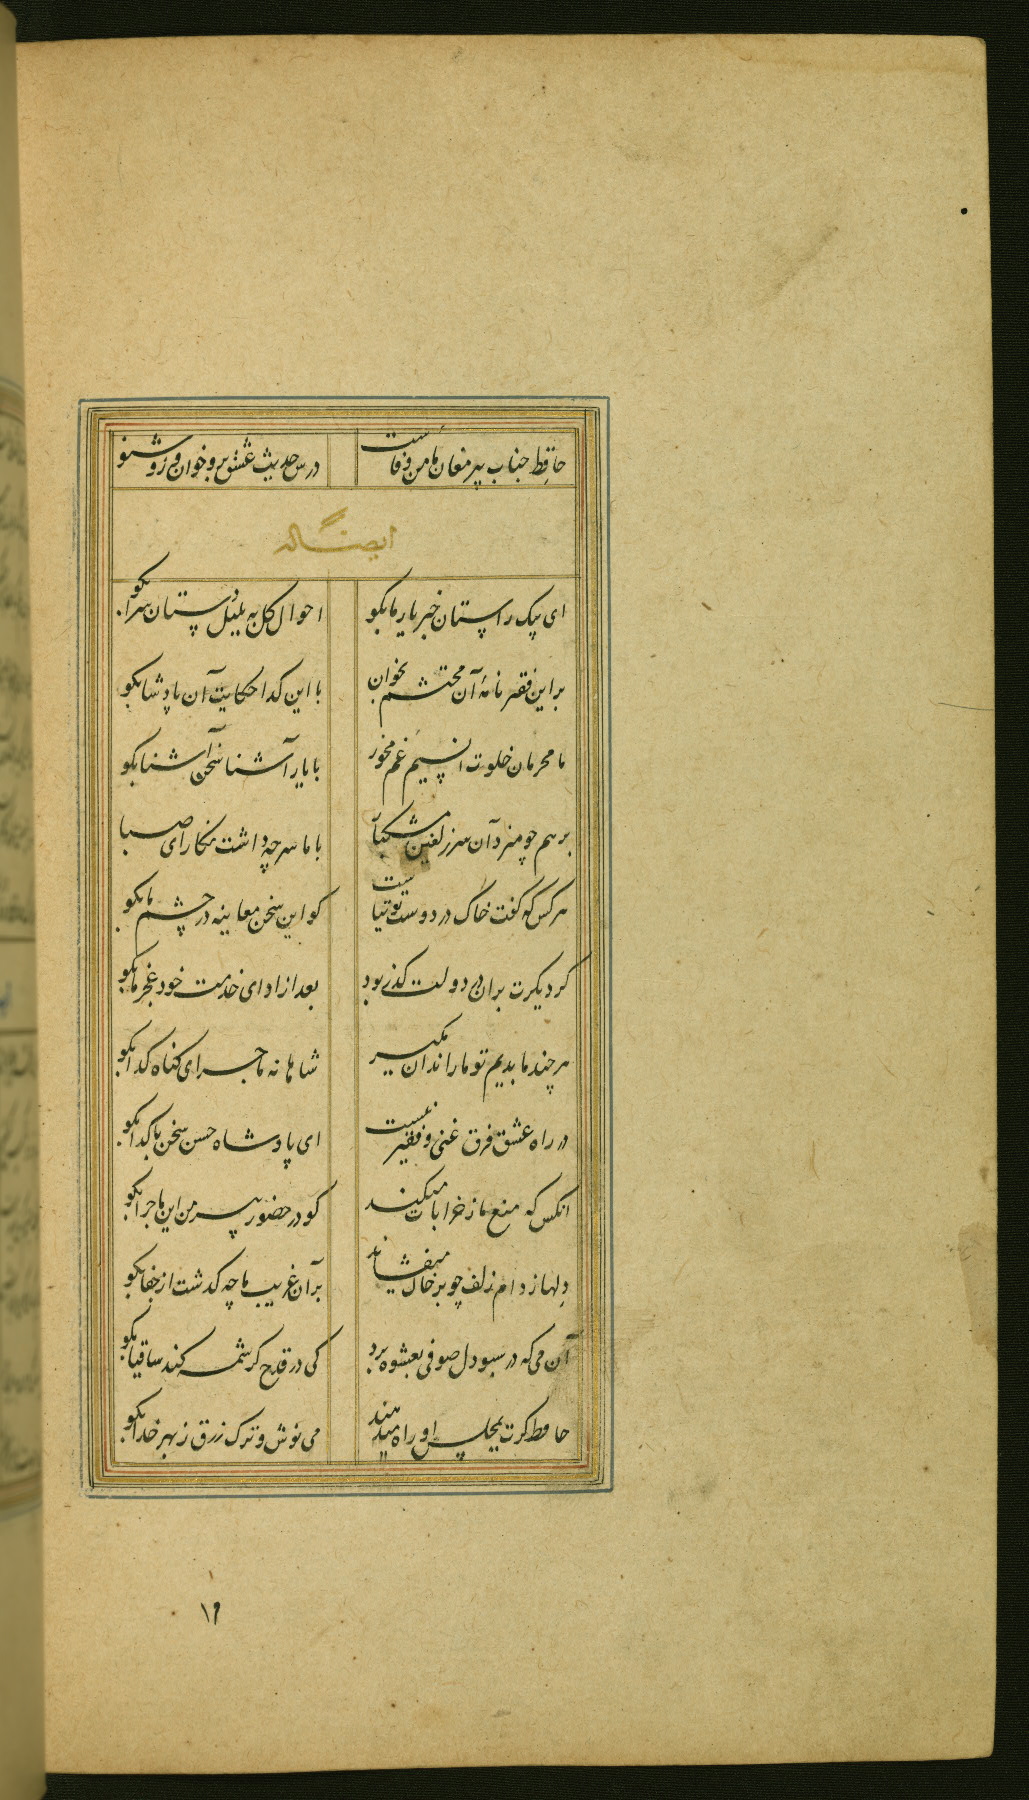 حافظ جناب پیر مغان مامن وفاست درس حدیث عشق برو خوان و زو شنو
ایضاً له
ای پیک راستان خبر یار ما بکو احوال کل به بلبل دستان سرا بکو
بر این فقیر نامهٔ آن محتشم بخوان با این کدا حکایت آن پادشا بکو
ما محرمان خلوت انسیم غم مخور با یار آشنا سخن آشنا بکو
برهم چو میزد آن سر زلفین مشکبار با ما سر چه داشت نکارا ای صبا
هر کس که گفت خاک در دوست توتیاست کو این سخن معاینه در چشم ما بکو
کر دیکرت بران در دولت کذر بود بعد از ادای خدمت خود عجز ما بکو
هر چند ما بدیم تو ما را بدان مکیر شاهانه ماجرای کناه کدا بکو
در راه عشق فرق غنی و فقیر نیست ای پادشاه حسن سخن با کدا بکو
انکس که منع ما ز خرابات میکند کو در حضور پیر من این ماجرا بکو
دلها ز دام زلف چو بر خاک میفشاند بر آن غریب ما چه کذشت از جفا بکو
آن می که در سبو دل صوفی بعشوه برد کی در قدح کرشمه کند ساقیا بکو
حافظ کرت بمجلس او راه میدهند می نوش و ترک زرق ز بهر خدا بکو
۱۹